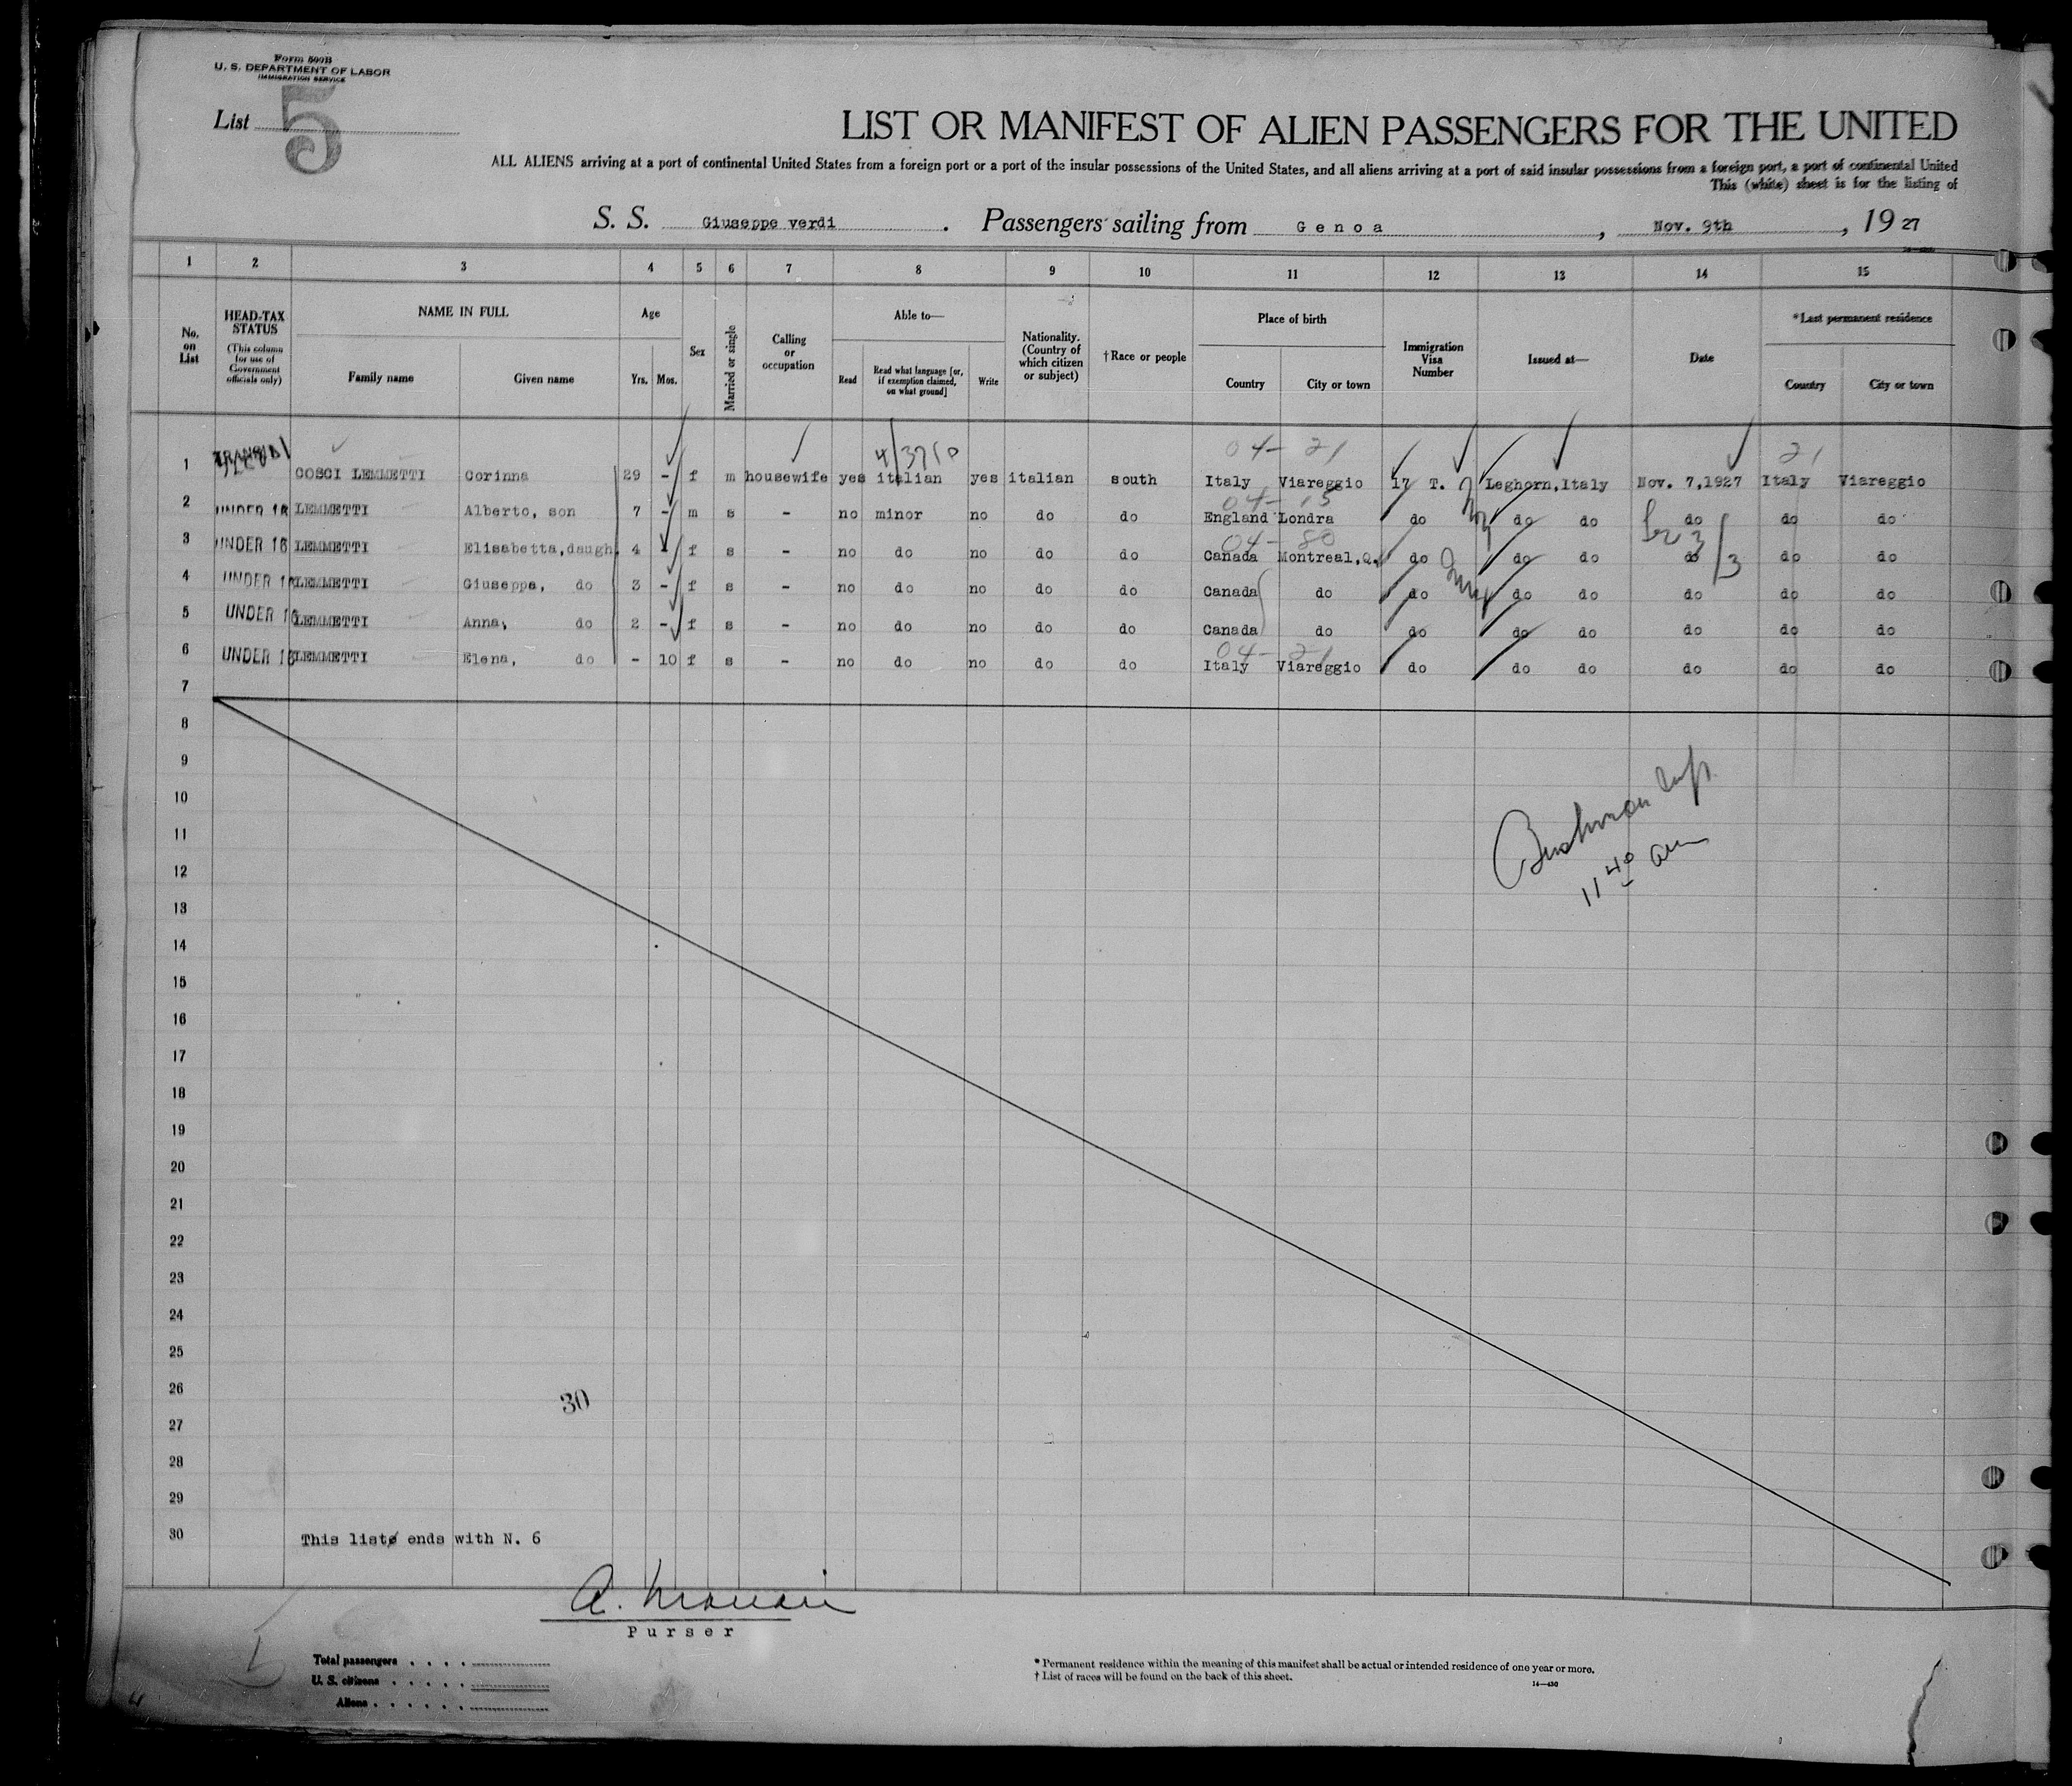 Form 500B
U. S. DEPARTMENT OF LABOR
IMMIGRATION SERVICE
List 5
LIST OR MANIFEST OF ALIEN PASSENGERS FOR THE UNITED
ALL ALIENS arriving at a port of continental United States from a foreign port or a port of the insular possessions of the United States, and all aliens arriving at a port of said insular possessions from a foreign port, a port of continental United
This (white) sheet is for the listing of
S. S. Giuseppe verdi . Passengers sailing from Genoa , Nov. 9th , 19 27
1 2 3 4 5 6 7 8 9 10 11 12 13 14 15
No. on List
HEAD-TAX STATUS (This column for use of Government officials only)
NAME IN FULL
Family name Given name
Age
Yrs. Mos.
Sex
Married or single
Calling or occupation
Able to—
Read Read what language [or, if exemption claimed, on what ground] Write
Nationality. (Country of which citizen or subject)
†Race or people
Place of birth
Country City or town
Immigration Visa Number
Issued at—
Date
*Last permanent residence
Country City or town
04- 21 21
1 COSCI LEMMETTI Corinna 29 - f m housewife yes italian yes italian south Italy Viareggio 17 T. Leghorn,Italy Nov. 7,1927 Italy Viareggio
04- 15
2 UNDER 16 LEMMETTI Alberto, son 7 - m s - no minor no do do England Londra do do do do do do
04- 80
3 UNDER 16 LEMMETTI Elisabetta,daugh. 4 - f s - no do no do do Canada Montreal,Q. do do do do do do
4 UNDER 16 LEMMETTI Giuseppa, do 3 - f s - no do no do do Canada do do do do do do do
5 UNDER 16 LEMMETTI Anna, do 2 - f s - no do no do do Canada do do do do do do do
04- 21
6 UNDER 16 LEMMETTI Elena, do - 10 f s - no do no do do Italy Viareggio do do do do do do
7
8
9
10
11
12
13
14
15
16
17
18
19
20
21
22
23
24
25
26
27
28
29
30
11 40 am
30
This lists ends with N. 6
Purser
Total passengers . . . .
U. S. citizens . . . . .
Aliens . . . . . .
* Permanent residence within the meaning of this manifest shall be actual or intended residence of one year or more.
† List of races will be found on the back of this sheet.
14—430